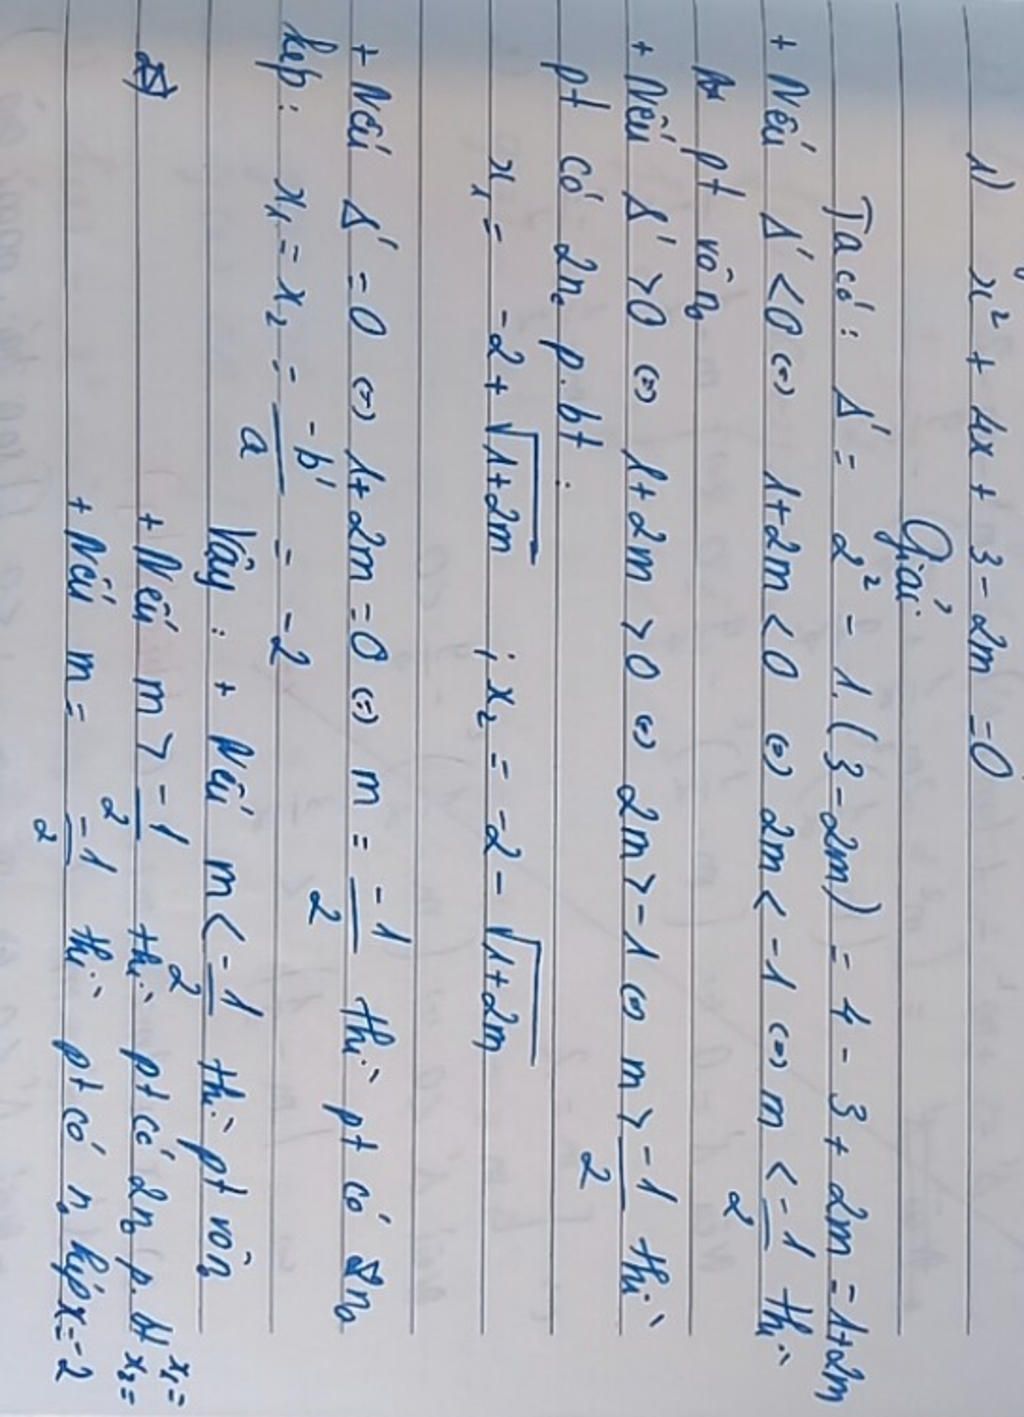 1) x² + 4x + 3 - 2m = 0
Giải
Ta có: Δ' = 2² - 1.(3 - 2m) = 4 - 3 + 2m = 1 + 2m
+ Nếu Δ' < 0 ⇔ 1 + 2m < 0 ⇔ 2m < -1 ⇔ m < -1/2 thì
pt vô no
+ Nếu Δ' > 0 ⇔ 1 + 2m > 0 ⇔ 2m > -1 ⇔ m > -1/2 thì
pt có 2no p.bt:
x₁ = -2 + √1+2m ; x₂ = -2 - √1+2m
+ Nếu Δ' = 0 ⇔ 1 + 2m = 0 ⇔ m = -1/2 thì pt có no
kép: x₁ = x₂ = -b'/a = -2
Vậy: + Nếu m < -1/2 thì pt vô no
+ Nếu m > -1/2 thì pt có 2no p.bt x₁ = x₂ =
+ Nếu m = -1/2 thì pt có no kép x = -2